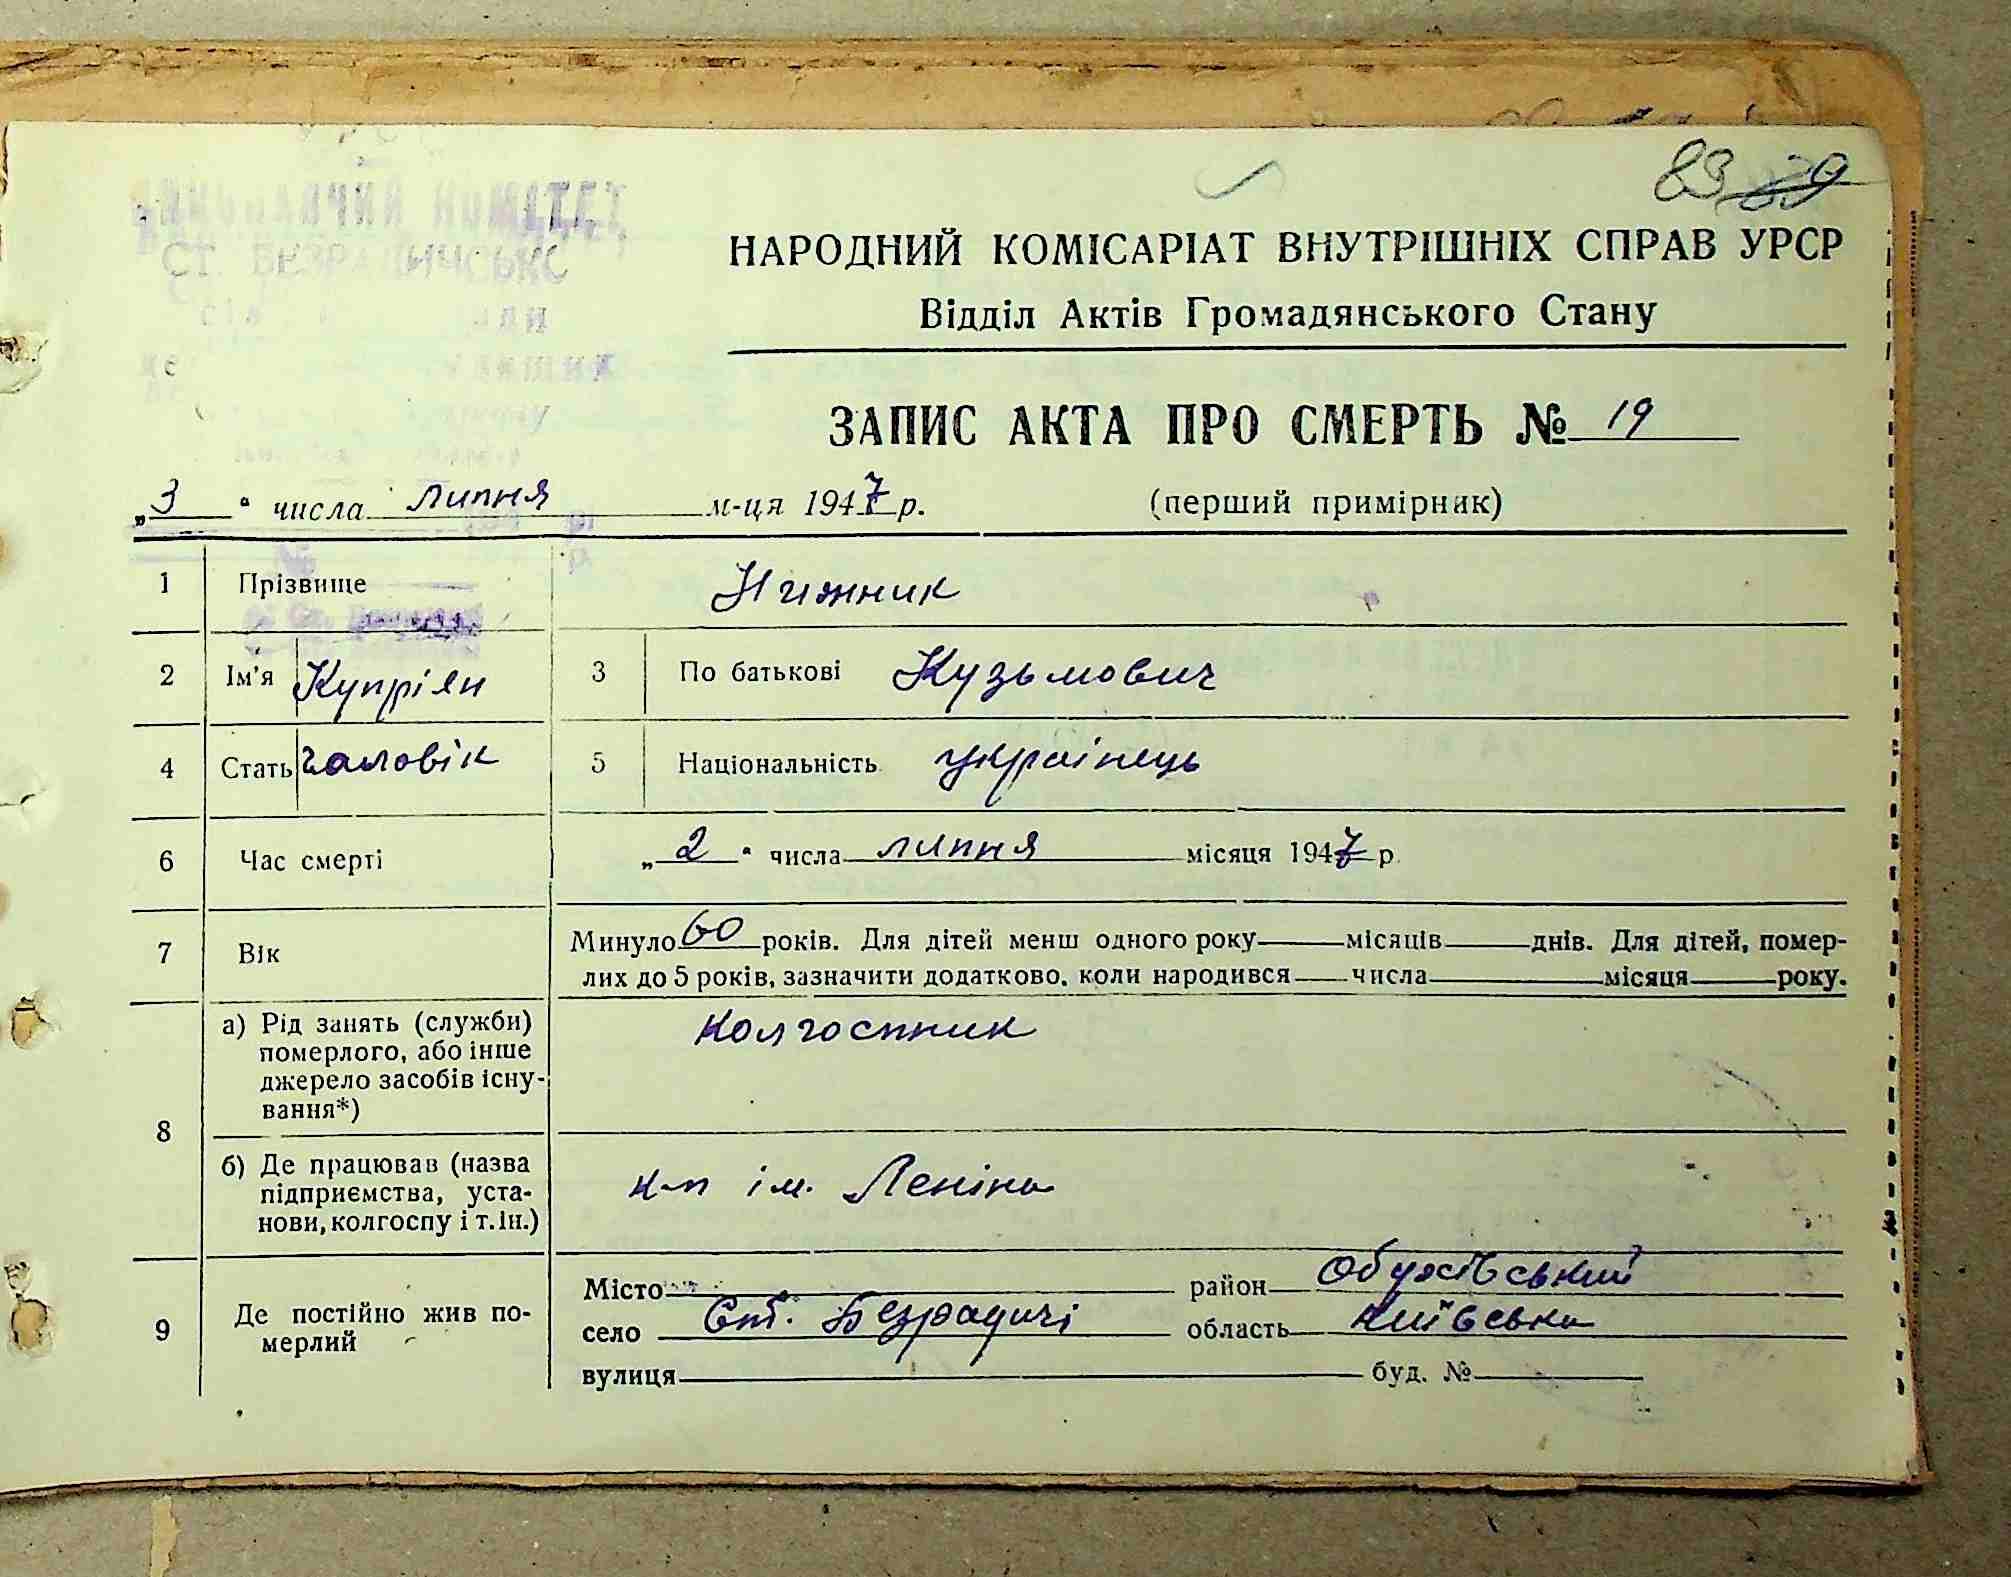 83 89
ВИКОНАВЧИЙ КОМІТЕТ
СТ. БЕЗРАДИЧСЬКО
НАРОДНИЙ КОМІСАРІАТ ВНУТРІШНІХ СПРАВ УРСР
Відділ Актів Громадянського Стану
ЗАПИС АКТА ПРО СМЕРТЬ № 19
„3“ числа липня м-ця 1947 р. (перший примірник)
1 Прізвище Нижник
2 Ім'я Купріян 3 По батькові Кузьмович
4 Стать чоловік 5 Національність українець
6 Час смерті „2“ числа липня місяця 1947 р.
7 Вік Минуло 60 років. Для дітей менш одного року місяців днів. Для дітей, помер-
лих до 5 років, зазначити додатково, коли народився числа місяця року.
8 а) Рід занять (служби) Колгоспник
померлого, або інше
джерело засобів існу-
вання*)
б) Де працював (назва к-п ім. Леніна
підприємства, уста-
нови, колгоспу і т. ін.)
9 Де постійно жив по-
мерлий
Місто район Обухівський
село Ст. Безрадичі область Київська
вулиця буд. №